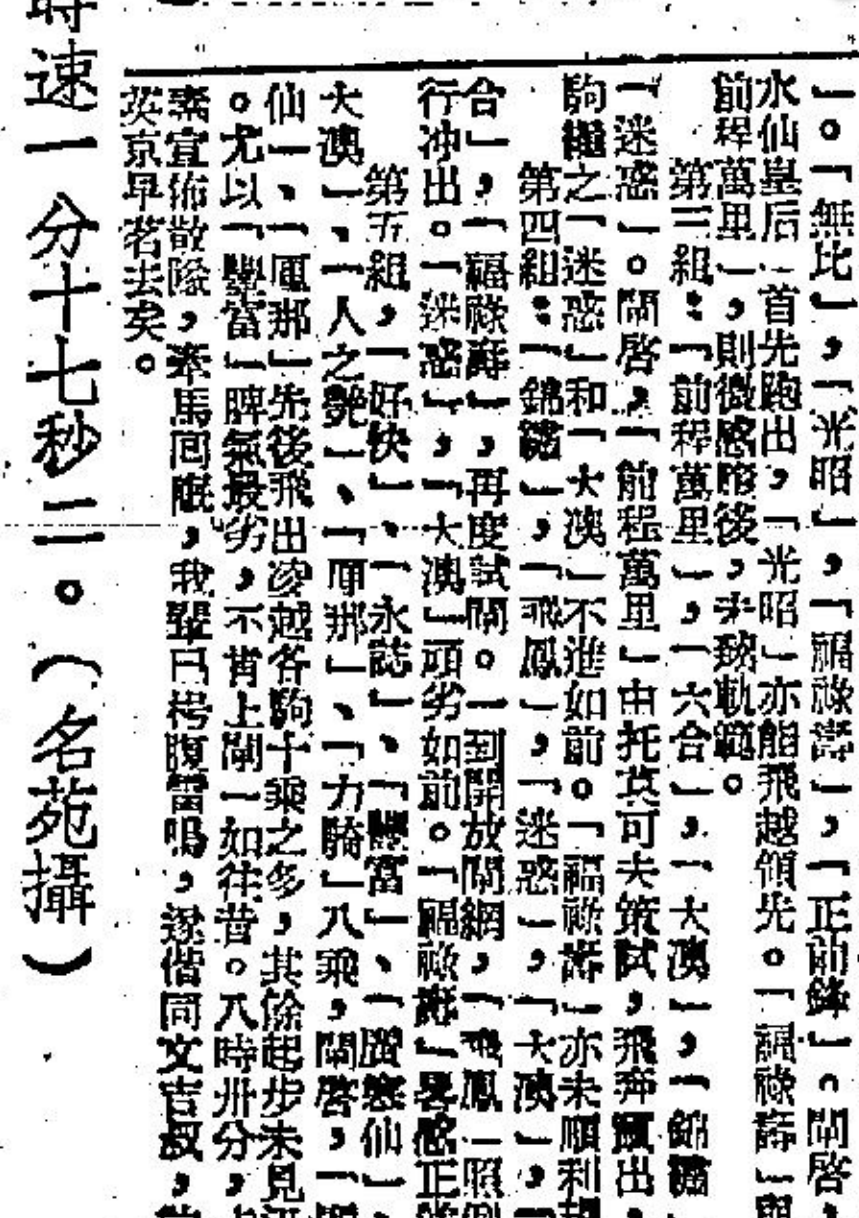 」。「無比」，「光昭」，「福祿壽」，「正前鋒」。閘啓，
水仙皇后」首先跑出，「光昭」亦能飛越領先。「福祿壽」與
前程萬里」，則微感略後，未致軌範。
第三組：「前程萬里」，「六合」，「大澳」，「錦繡
「迷惑」。閘啓，「前程萬里」由托莫可夫策試，飛奔出，
駒繼之「迷惑」和「大澳」不進如前。「福祿壽」亦未順利
第四組：「錦繡」，「飛鳳」，「迷惑」，「大澳」，「
合」，「福祿壽」，再度試閘。一到開放閘網，「飛鳳」照例
行冲出。「迷惑」，「大澳」頑劣如前。「福祿壽」畧感正
第五組，「好快」、「永誌」、「豐富」、「仙」、
大澳」、「人之艷」、「厘那」、「力騎」八乘，閘啓，「
仙」、「厘那」先後飛出凌越各駒十乘之多，其餘起步未見
。尤以「豐富」脾氣最劣，不肯上閘一如往昔。八時卅分，
素宣佈散隊，牽馬回廐，我輩已枵腹雷鳴，遂偕同文吉叔，
英京早茗去矣。
時速一分十七秒二。（名苑攝）